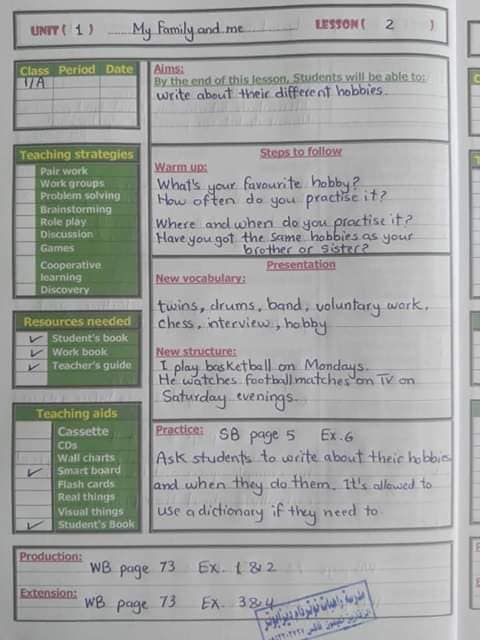 UNIT ( 1 ) My Family and me LESSON ( 2 )
Class Period Date
1/A
Teaching strategies
Pair work
Work groups
Problem solving
Brainstorming
Role play
Discussion
Games
Cooperative
learning
Discovery
Resources needed
Student's book
Work book
Teacher's guide
Teaching aids
Cassette
CDs
Wall charts
Smart board
Flash cards
Real things
Visual things
Student's Book
Aims:
By the end of this lesson, Students will be able to:
write about their different hobbies.
Steps to follow
Warm up:
What's your favourite hobby?
How often do you practise it?
Where and when do you practise it?
Have you got the same hobbies as your
brother or sister?
Presentation
New vocabulary:
twins, drums, band, voluntary work,
chess, interview, hobby
New structure:
I play basketball on Mondays.
He watches football matches on TV on
Saturday evenings.
Practice: SB page 5 Ex.6
Ask students to write about their hobbies
and when they do them. It's allowed to
use a dictionary if they need to
Production: WB page 73 Ex. 1 & 2
Extension: WB page 73 Ex. 3 & 4